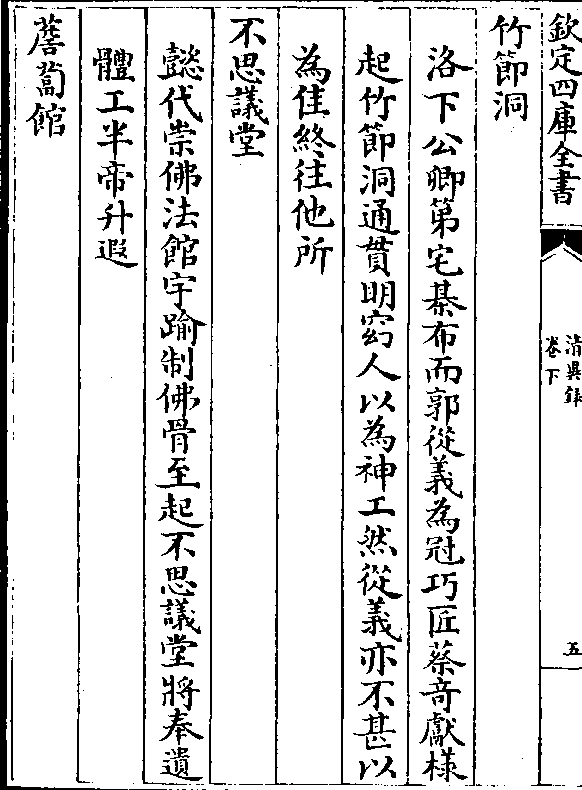 欽定四庫全書
清異錄
卷下
五
竹節洞
洛下公卿第宅棊布而郭從義為冠巧匠蔡竒獻様
起竹節洞通貫明窈人以為神工然從義亦不甚以
為佳終往他所
不思議堂
懿代崇佛法館宇踰制佛骨至起不思議堂將奉遺
體工半帝升遐
薝蔔館